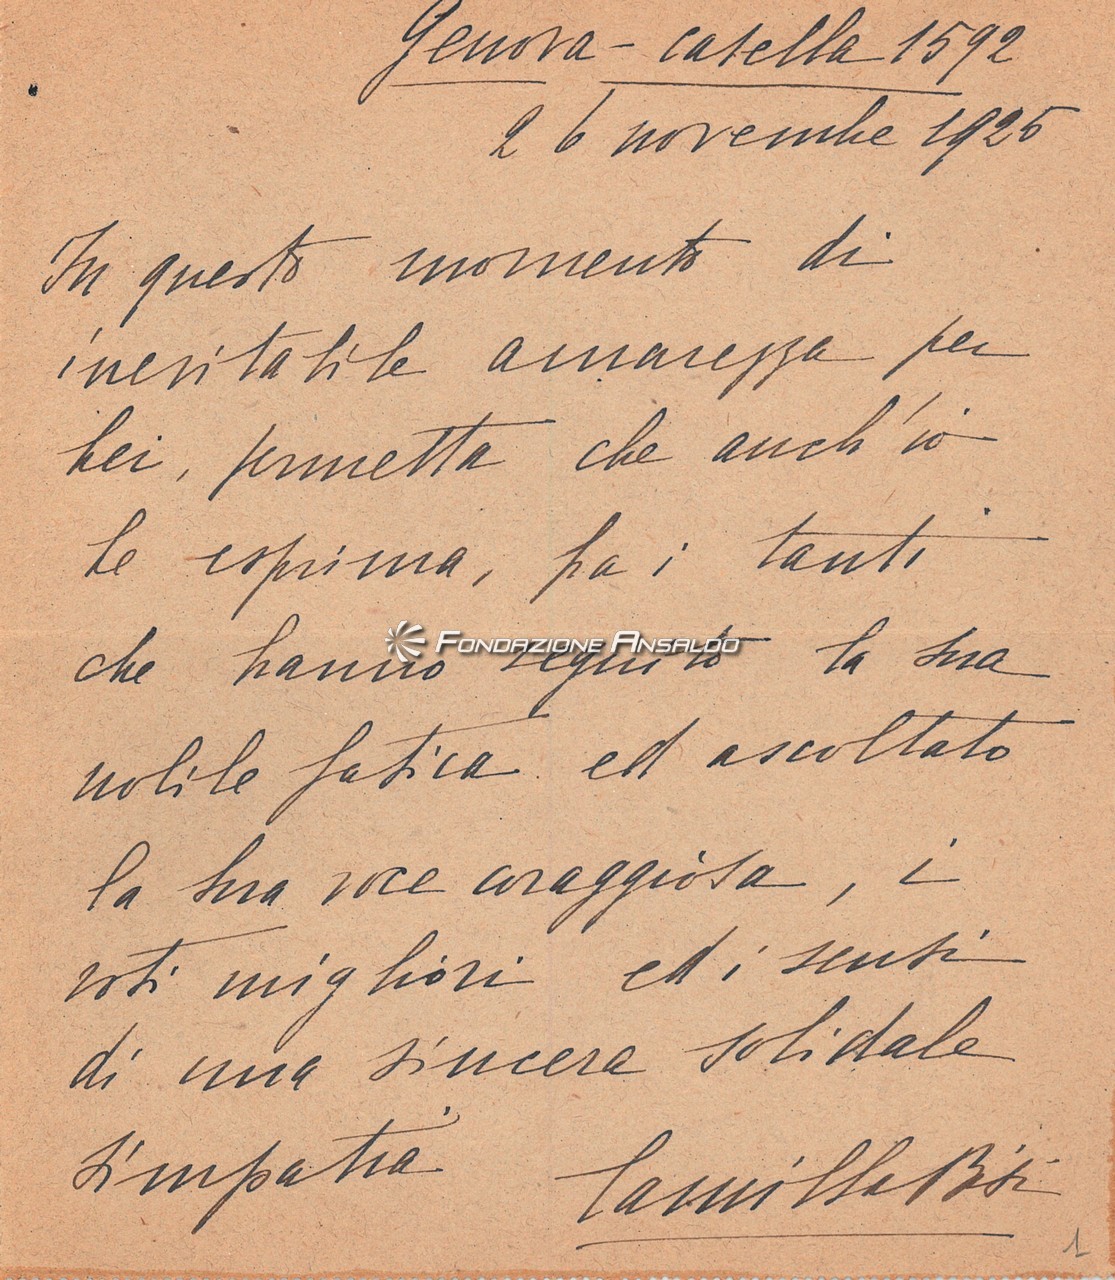 Genova - casella 1592
26 novembre 1925
In questo momento di
inevitabile amarezza per
Lei, permetta che anch'io
Le esprima, fra i tanti
che hanno seguito la sua
FONDAZIONE ANSALDO
nobile fatica ed ascoltato
la sua voce coraggiosa, i
voti migliori ed i sensi
di una sincera solidale
simpatia
Camilla Bisi
1